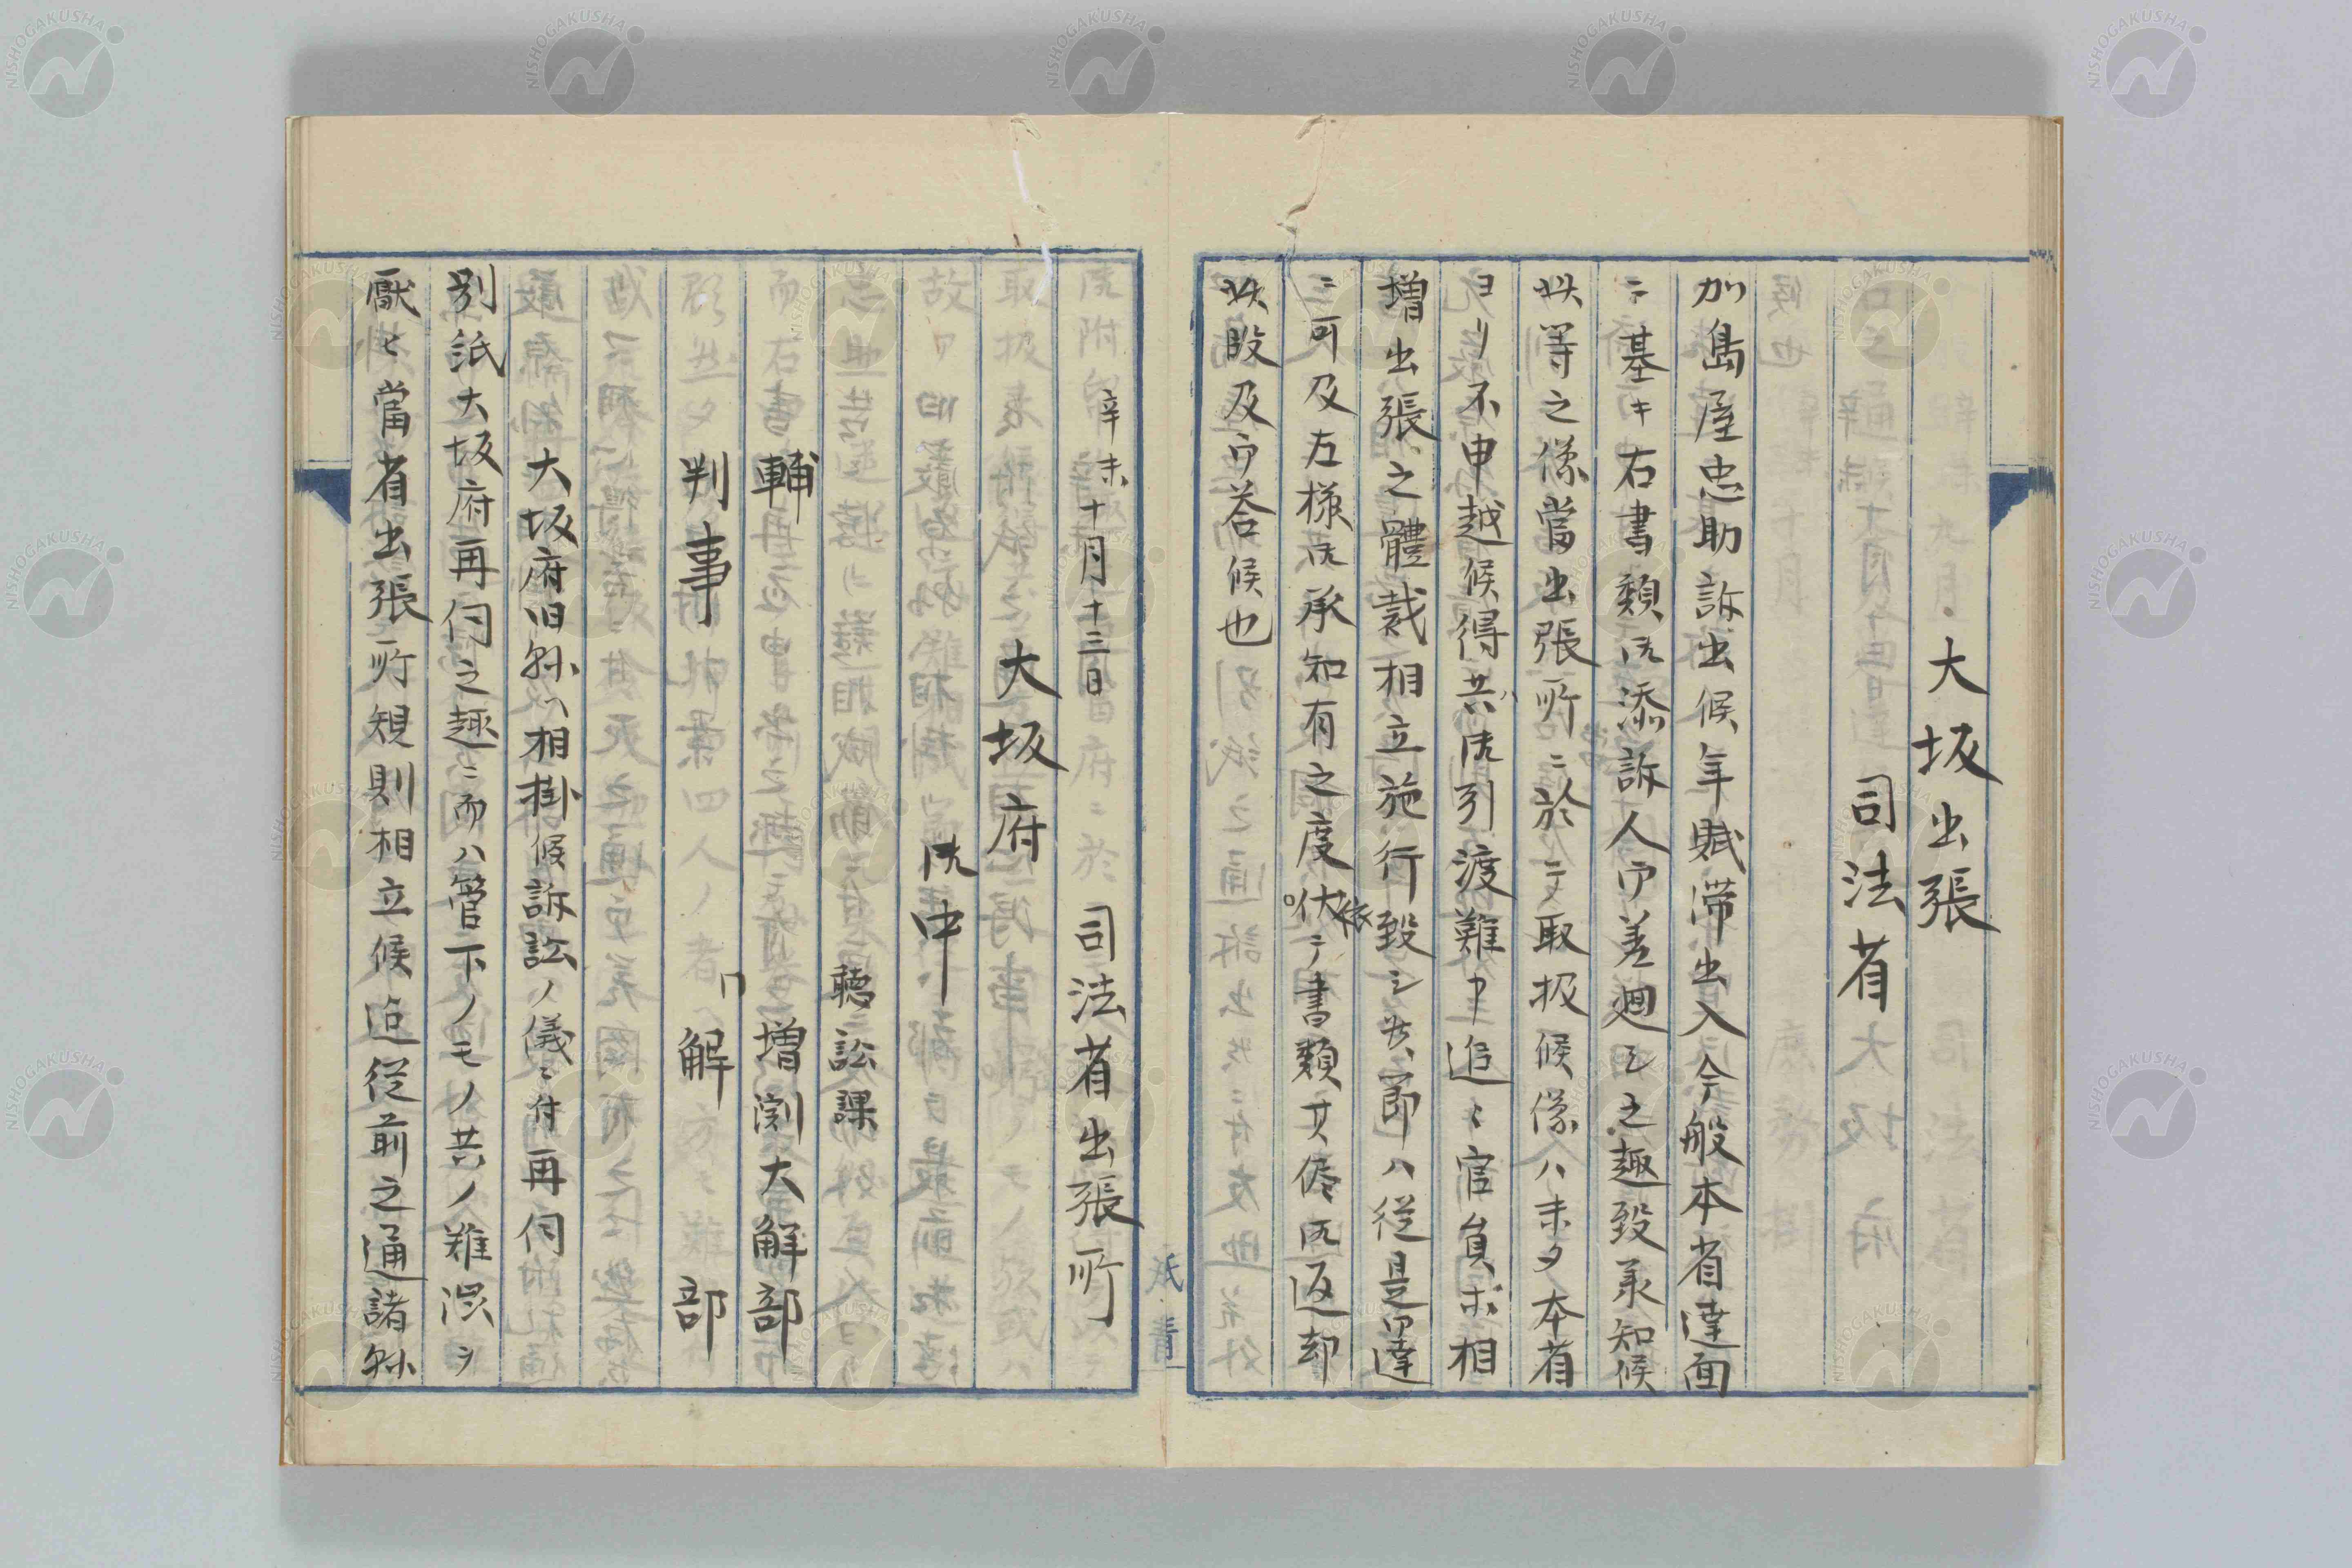 大坂出張
司法省
加島屋忠助訴出候年賦滞出入今般本省達面
ニ基キ右書類御添訴人御差廻シ之趣致承知候
此等之儀當出張所ニ於テ取扱候儀ハ未タ本省
ヨリ不申越候得共御引渡難申追々官員ホ相
増出張之體裁相立施行致シ候節ハ従是御達
ニ可及左様御承知有之度依テ書類其儘御返却
此段及御答候也
辛未十月十三日
司法省出張所
大坂府
御中
聴訟課
輔 増割大解部
判事 解部
大坂府旧縣ヘ相掛候訴訟ノ儀ニ付再伺
別紙大坂府再伺之趣ニ而ハ管下ノモノ共ノ難渋ヲ
厭ヒ當省出張所規則相立候迄従前之通諸縣
NISHOGAKUSHA